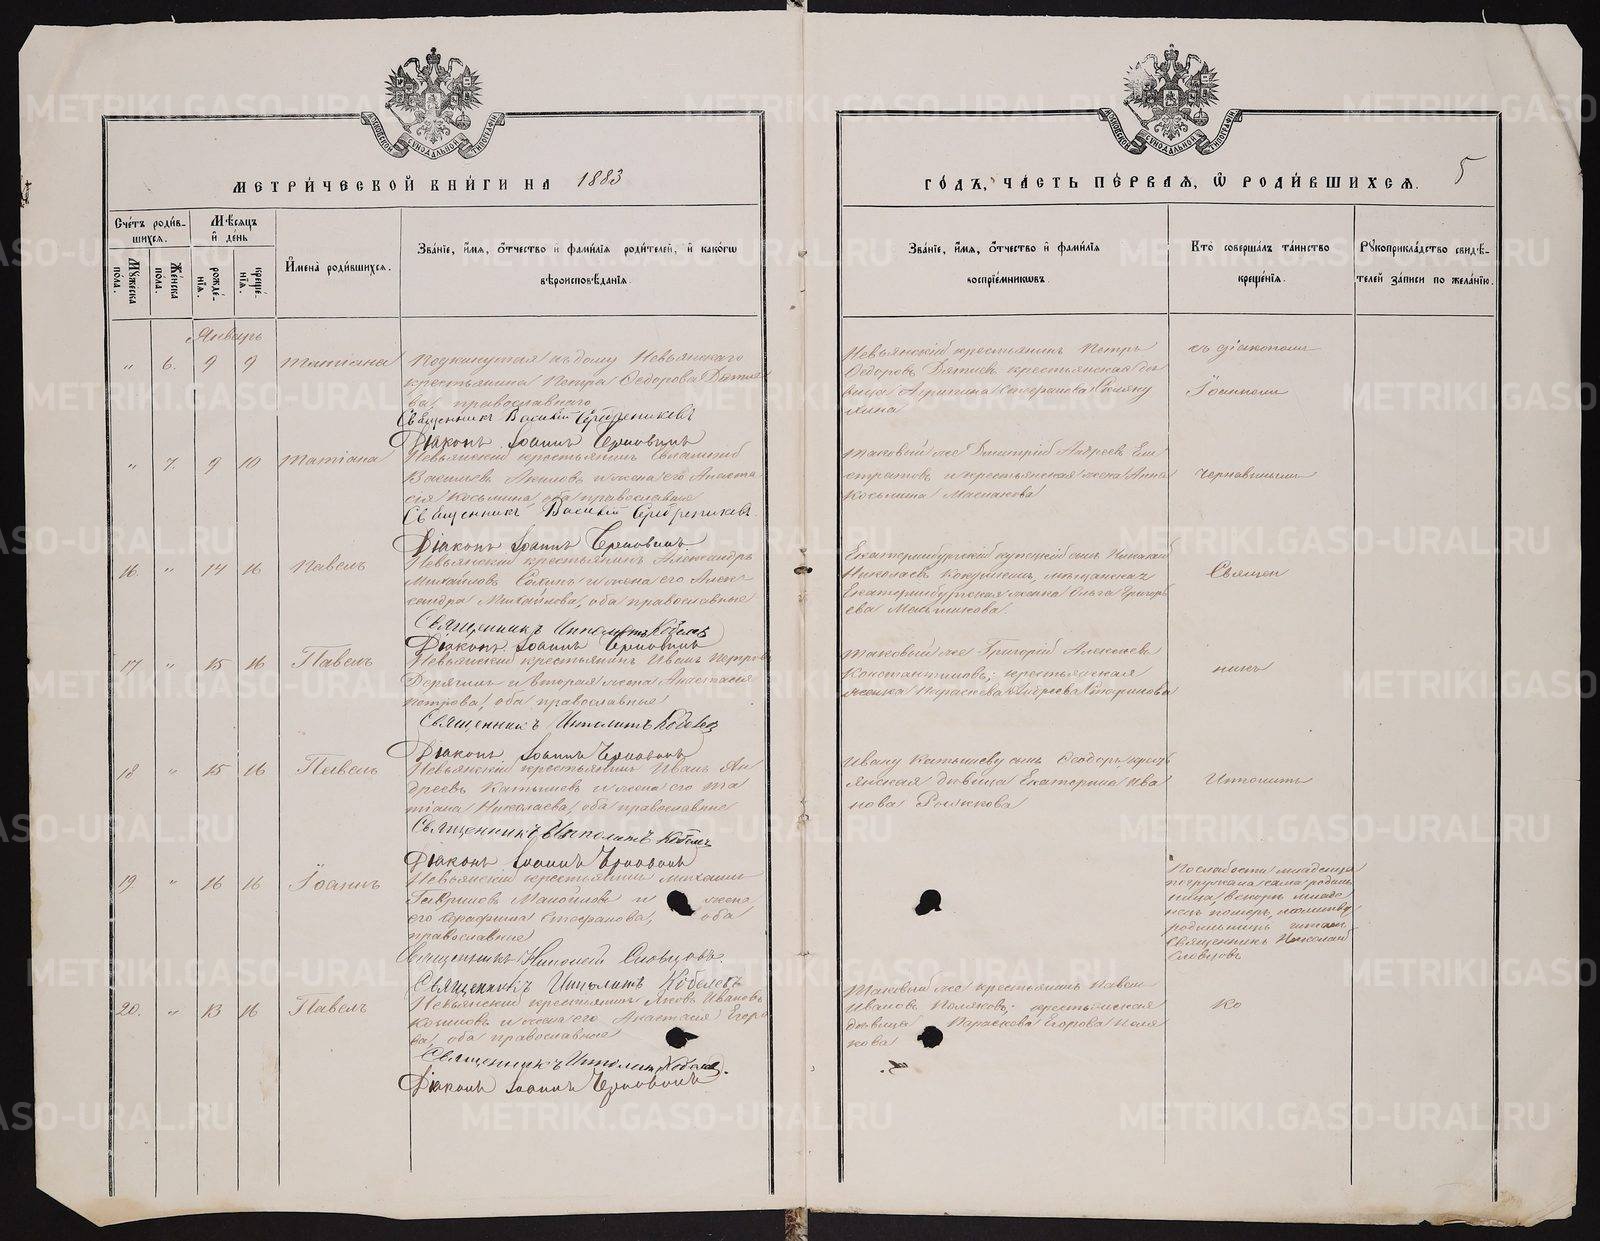 МЕТРИ́ЧЕСКОЙ КНИ́ГИ НА 1883
ГО́ДЪ, ЧА́СТЬ ПЕ́РВАЯ, Ѡ РОДИ́ВШИХСЯ. 5
Сче́тъ роди́в-
шихся.
Му́жеска по́ла.
Же́нска по́ла.
Мѣ́сяцъ
и де́нь
рожде́нїя.
креще́нїя.
И́мена роди́вшихся.
Зва́нїе, и́мя, ѻ́тчество и фами́лїя роди́телей, и како́гѡ
вѣроисповѣ́данїя.
Зва́нїе, и́мя, ѻ́тчество и фами́лїя
воспрїе́мниковъ.
Кто̀ соверша́лъ та́инство
креще́нїя.
Рꙋкоприкла́дство свидѣ́-
телей за́писи по жела́нїю.
Январь
" 6. 9 9 Татіана
Подкинутая къ дому Невьянскаго
крестьянина Петра Ѳедорова
православнаго
Священникъ Василій Серебрениковъ
Діаконъ Іоаннъ
Невьянскій крестьянинъ Петръ
Ѳедоровъ крестьянская дѣ
вица
съ діакономъ
Іоанномъ
" 7. 9 10 Татіана
Невьянскій крестьянинъ Евлампій
Васильевъ и жена его Анаста
сія Косьмина, оба православные
Священникъ Василій Серебрениковъ
Діаконъ Іоаннъ
Таковый же Димитрій Андреевъ Ели
стратовъ и крестьянская жена Анна
Косьмина
16. " 14 16 Павелъ
Невьянскій крестьянинъ Александръ
Михайловъ и жена его Алек
сандра Михайлова, оба православные
Священникъ Ипполитъ Кобелевъ
Діаконъ Іоаннъ
Екатеринбургскій купецкій сынъ Николай
Николаевъ мѣщанская
Екатеринбургская женка Ольга Григорь
ева Мельникова.
Священ
17 " 15 16 Павелъ
Невьянскій крестьянинъ Иванъ Петровъ
и вторая жена Анастасія
Петрова, оба православные
Священникъ Ипполитъ Кобелевъ
Діаконъ Іоаннъ
Таковый же Григорій Алексѣевъ
Константиновъ; крестьянская
женка Параскева Андреева
никъ
18 " 15 16 Павелъ
Невьянскій крестьянинъ Иванъ Ан
дреевъ Катышевъ и жена его Та
тіана Николаева, оба православные
Священникъ Ипполитъ Кобелевъ
Діаконъ Іоаннъ
Ивану Катышеву сынъ Ѳеодоръ
янская дѣвица Екатерина Ива
нова Рожкова
Ипполитъ
19. " 16 16 Іоаннъ
Невьянскій крестьянинъ Михаилъ
Гавриловъ Мамойловъ и жена
его Серафима Стефанова, оба
православные
Священникъ Николай Словцовъ.
Священникъ Ипполитъ Кобелевъ
По слабости младенца
погружена сама родиль
ница, вскорѣ младе
нецъ померъ, молитву
родильницѣ читалъ
Священникъ Николай
Словцовъ
20. " 13 16 Павелъ
Невьянскій крестьянинъ Яковъ Ивановъ
и жена его Анастасія Егоро
ва, оба православные
Священникъ Ипполитъ Кобелевъ.
Діаконъ Іоаннъ
Таковый же крестьянинъ Павелъ
Ивановъ Поляковъ; крестьянская
дѣвица Параскева Егорова Поля
кова
Ко
METRIKI.GASO-URAL.RU